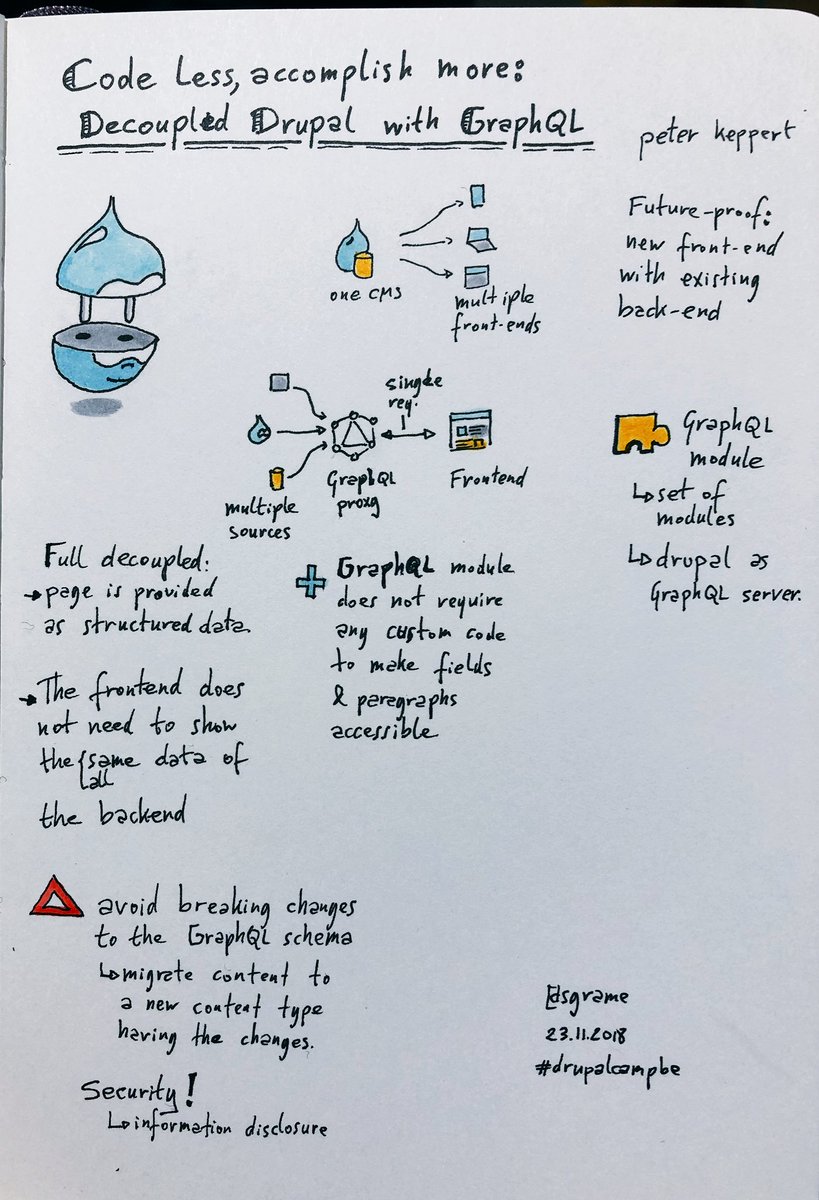 Code Less, accomplish more:
Decoupled Drupal with GraphQL
peter keppert
one CMS
multiple
front-ends
Future-proof:
new front-end
with existing
back-end
single
req.
multiple
sources
GraphQL
proxy
Frontend
GraphQL
module
↳ set of
modules
↳ drupal as
GraphQL server.
Full decoupled:
→ page is provided
as structured data
→ The frontend does
not need to show
the { same data of
all
the backend
+ GraphQL module
does not require
any custom code
to make fields
& paragraphs
accessible
avoid breaking changes
to the GraphQL schema
↳ migrate content to
a new content type
having the changes.
Security!
↳ information disclosure
@dsgrame
23.11.2018
#drupalcampbe